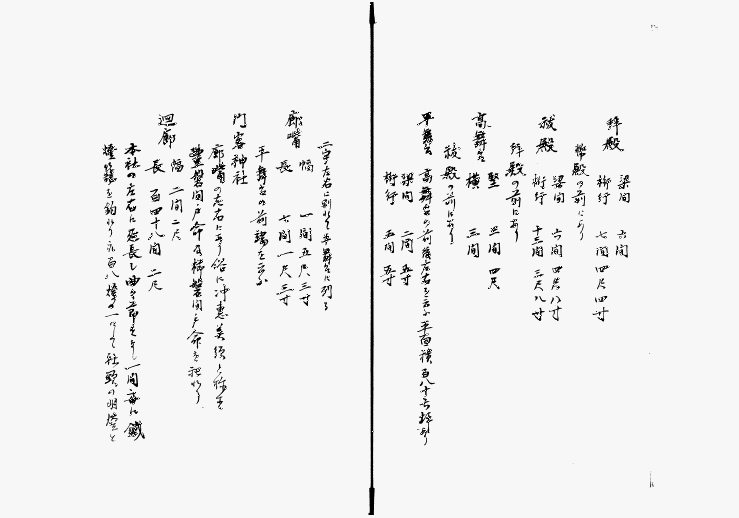 拝殿
梁間 六間
桁行 七間四尺四寸
幣殿の前にあり
祓殿
梁間 六間四尺八寸
桁行 十三間三尺八寸
拝殿の前にあり
高舞台
竪 三間四尺
横 三間
祓殿の前にあり
平舞台 高舞台の前後左右を云ふ平面積百八十 坪あり
梁間 二間五寸
桁行 五間五寸
二字左右に別れて平舞台に列る
廊嘴
幅 一間五尺三寸
長 七間一尺三寸
平舞台の前端を云ふ
門客神社
廊嘴の左右にあり俗に沖恵美須と称す
豊磐間戸命 櫛磐間戸命を祀れり
廻廊
幅 二間二尺
長 百四十八間二尺
本社の左右に延長し曲々 一間毎に鐵
燈籠を釣れり 百八燈 一にして社頭の明燈と